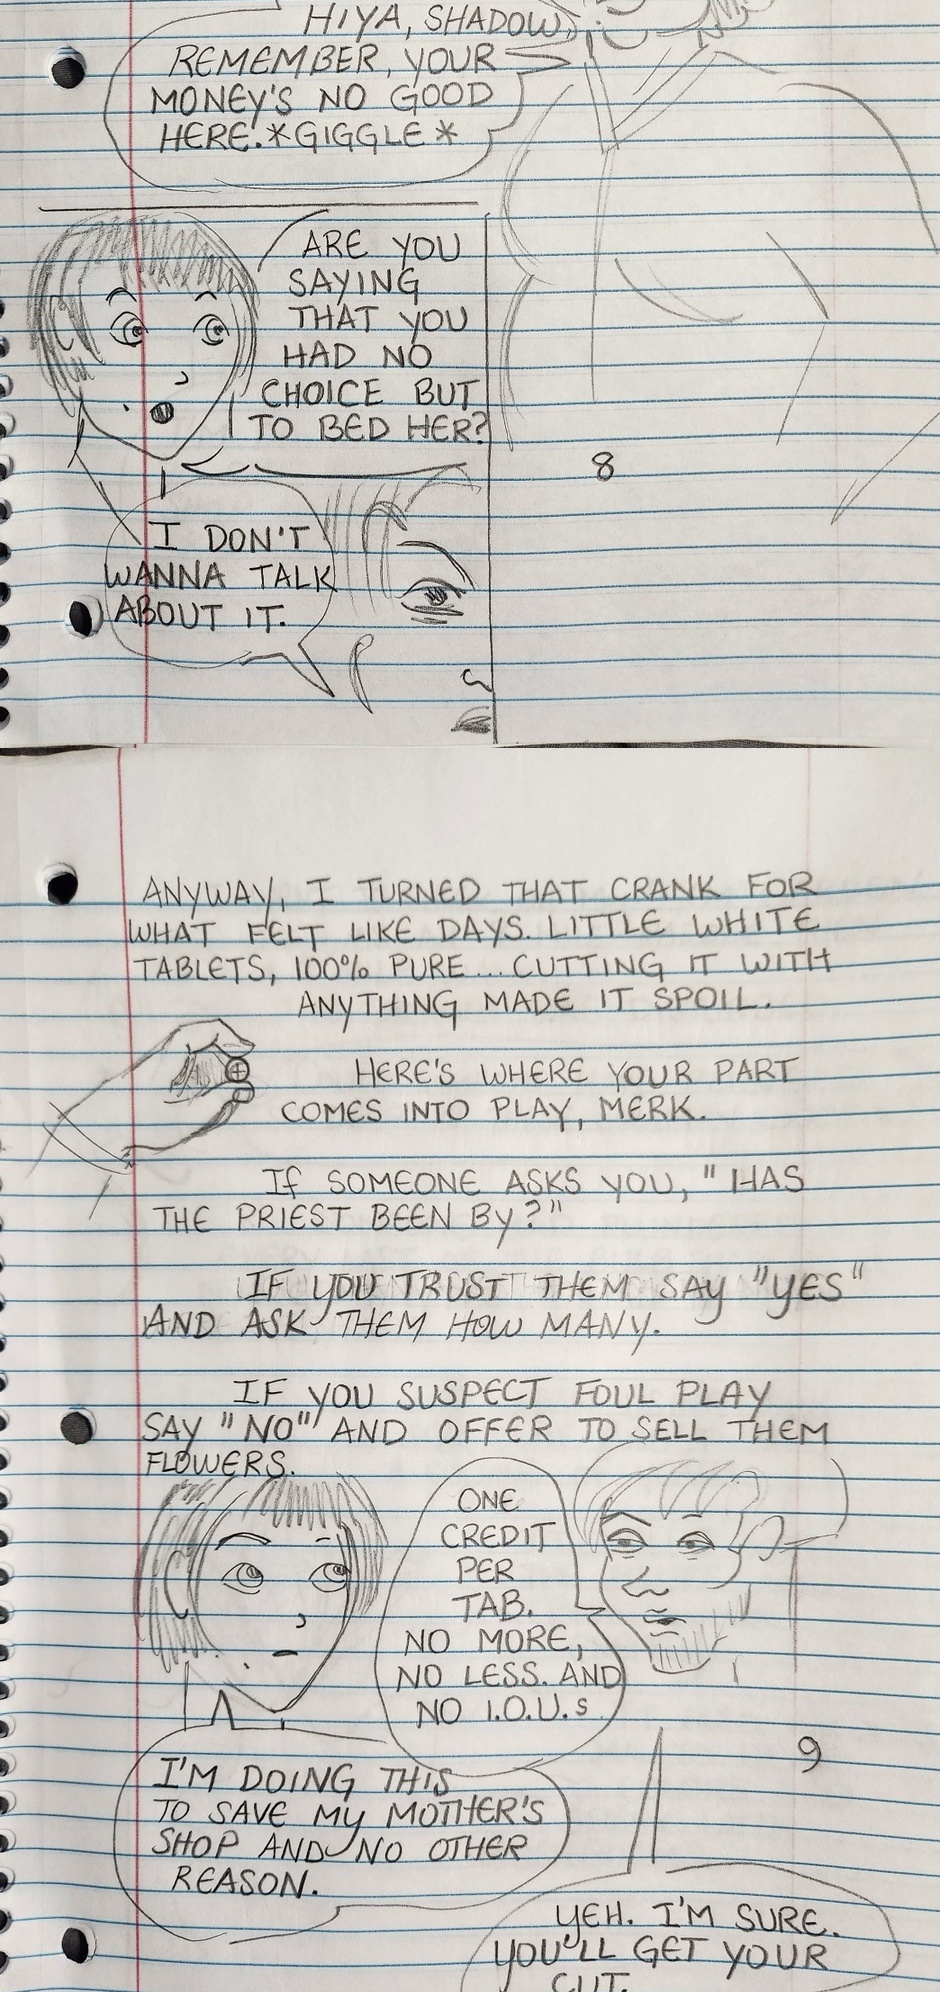 HIYA, SHADOW,
REMEMBER, YOUR
MONEY'S NO GOOD
HERE.*GIGGLE*
ARE YOU
SAYING
THAT YOU
HAD NO
CHOICE BUT
TO BED HER?
I DON'T
WANNA TALK
ABOUT IT.
8
ANYWAY, I TURNED THAT CRANK FOR
WHAT FELT LIKE DAYS. LITTLE WHITE
TABLETS, 100% PURE... CUTTING IT WITH
ANYTHING MADE IT SPOIL.
HERE'S WHERE YOUR PART
COMES INTO PLAY, MERK.
If SOMEONE ASKS YOU, "HAS
THE PRIEST BEEN BY?"
IF YOU TRUST THEM SAY "YES"
AND ASK THEM HOW MANY.
IF YOU SUSPECT FOUL PLAY
SAY "NO" AND OFFER TO SELL THEM
FLOWERS.
ONE
CREDIT
PER
TAB.
NO MORE,
NO LESS. AND
NO I.O.U.s
I'M DOING THIS
TO SAVE MY MOTHER'S
SHOP AND NO OTHER
REASON.
9
YEH. I'M SURE.
YOU'LL GET YOUR
CUT.